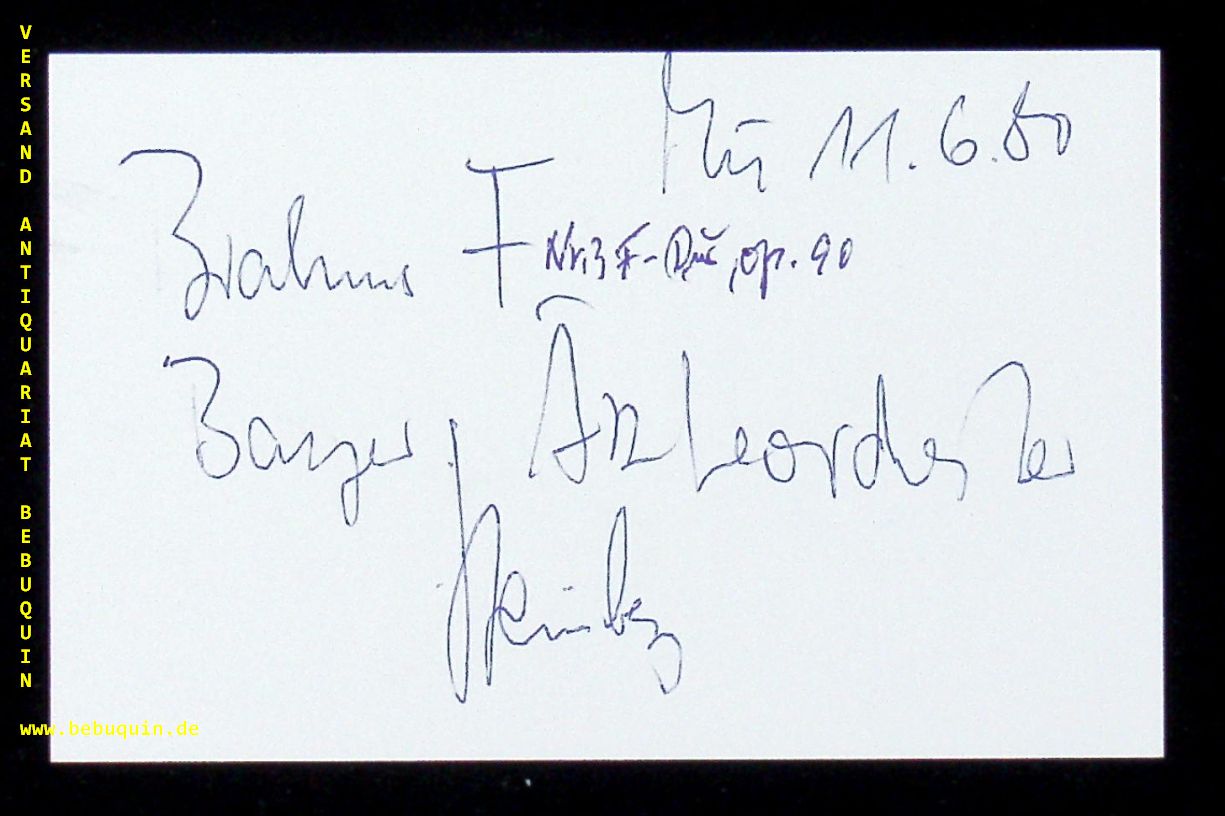 VERSAND ANTIQUARIAT BEBUQUIN
Mü 11.6.80
Brahms F Nr.3 F-Dur, op. 90
Bayer. Ärzteorchester
www.bebuquin.de